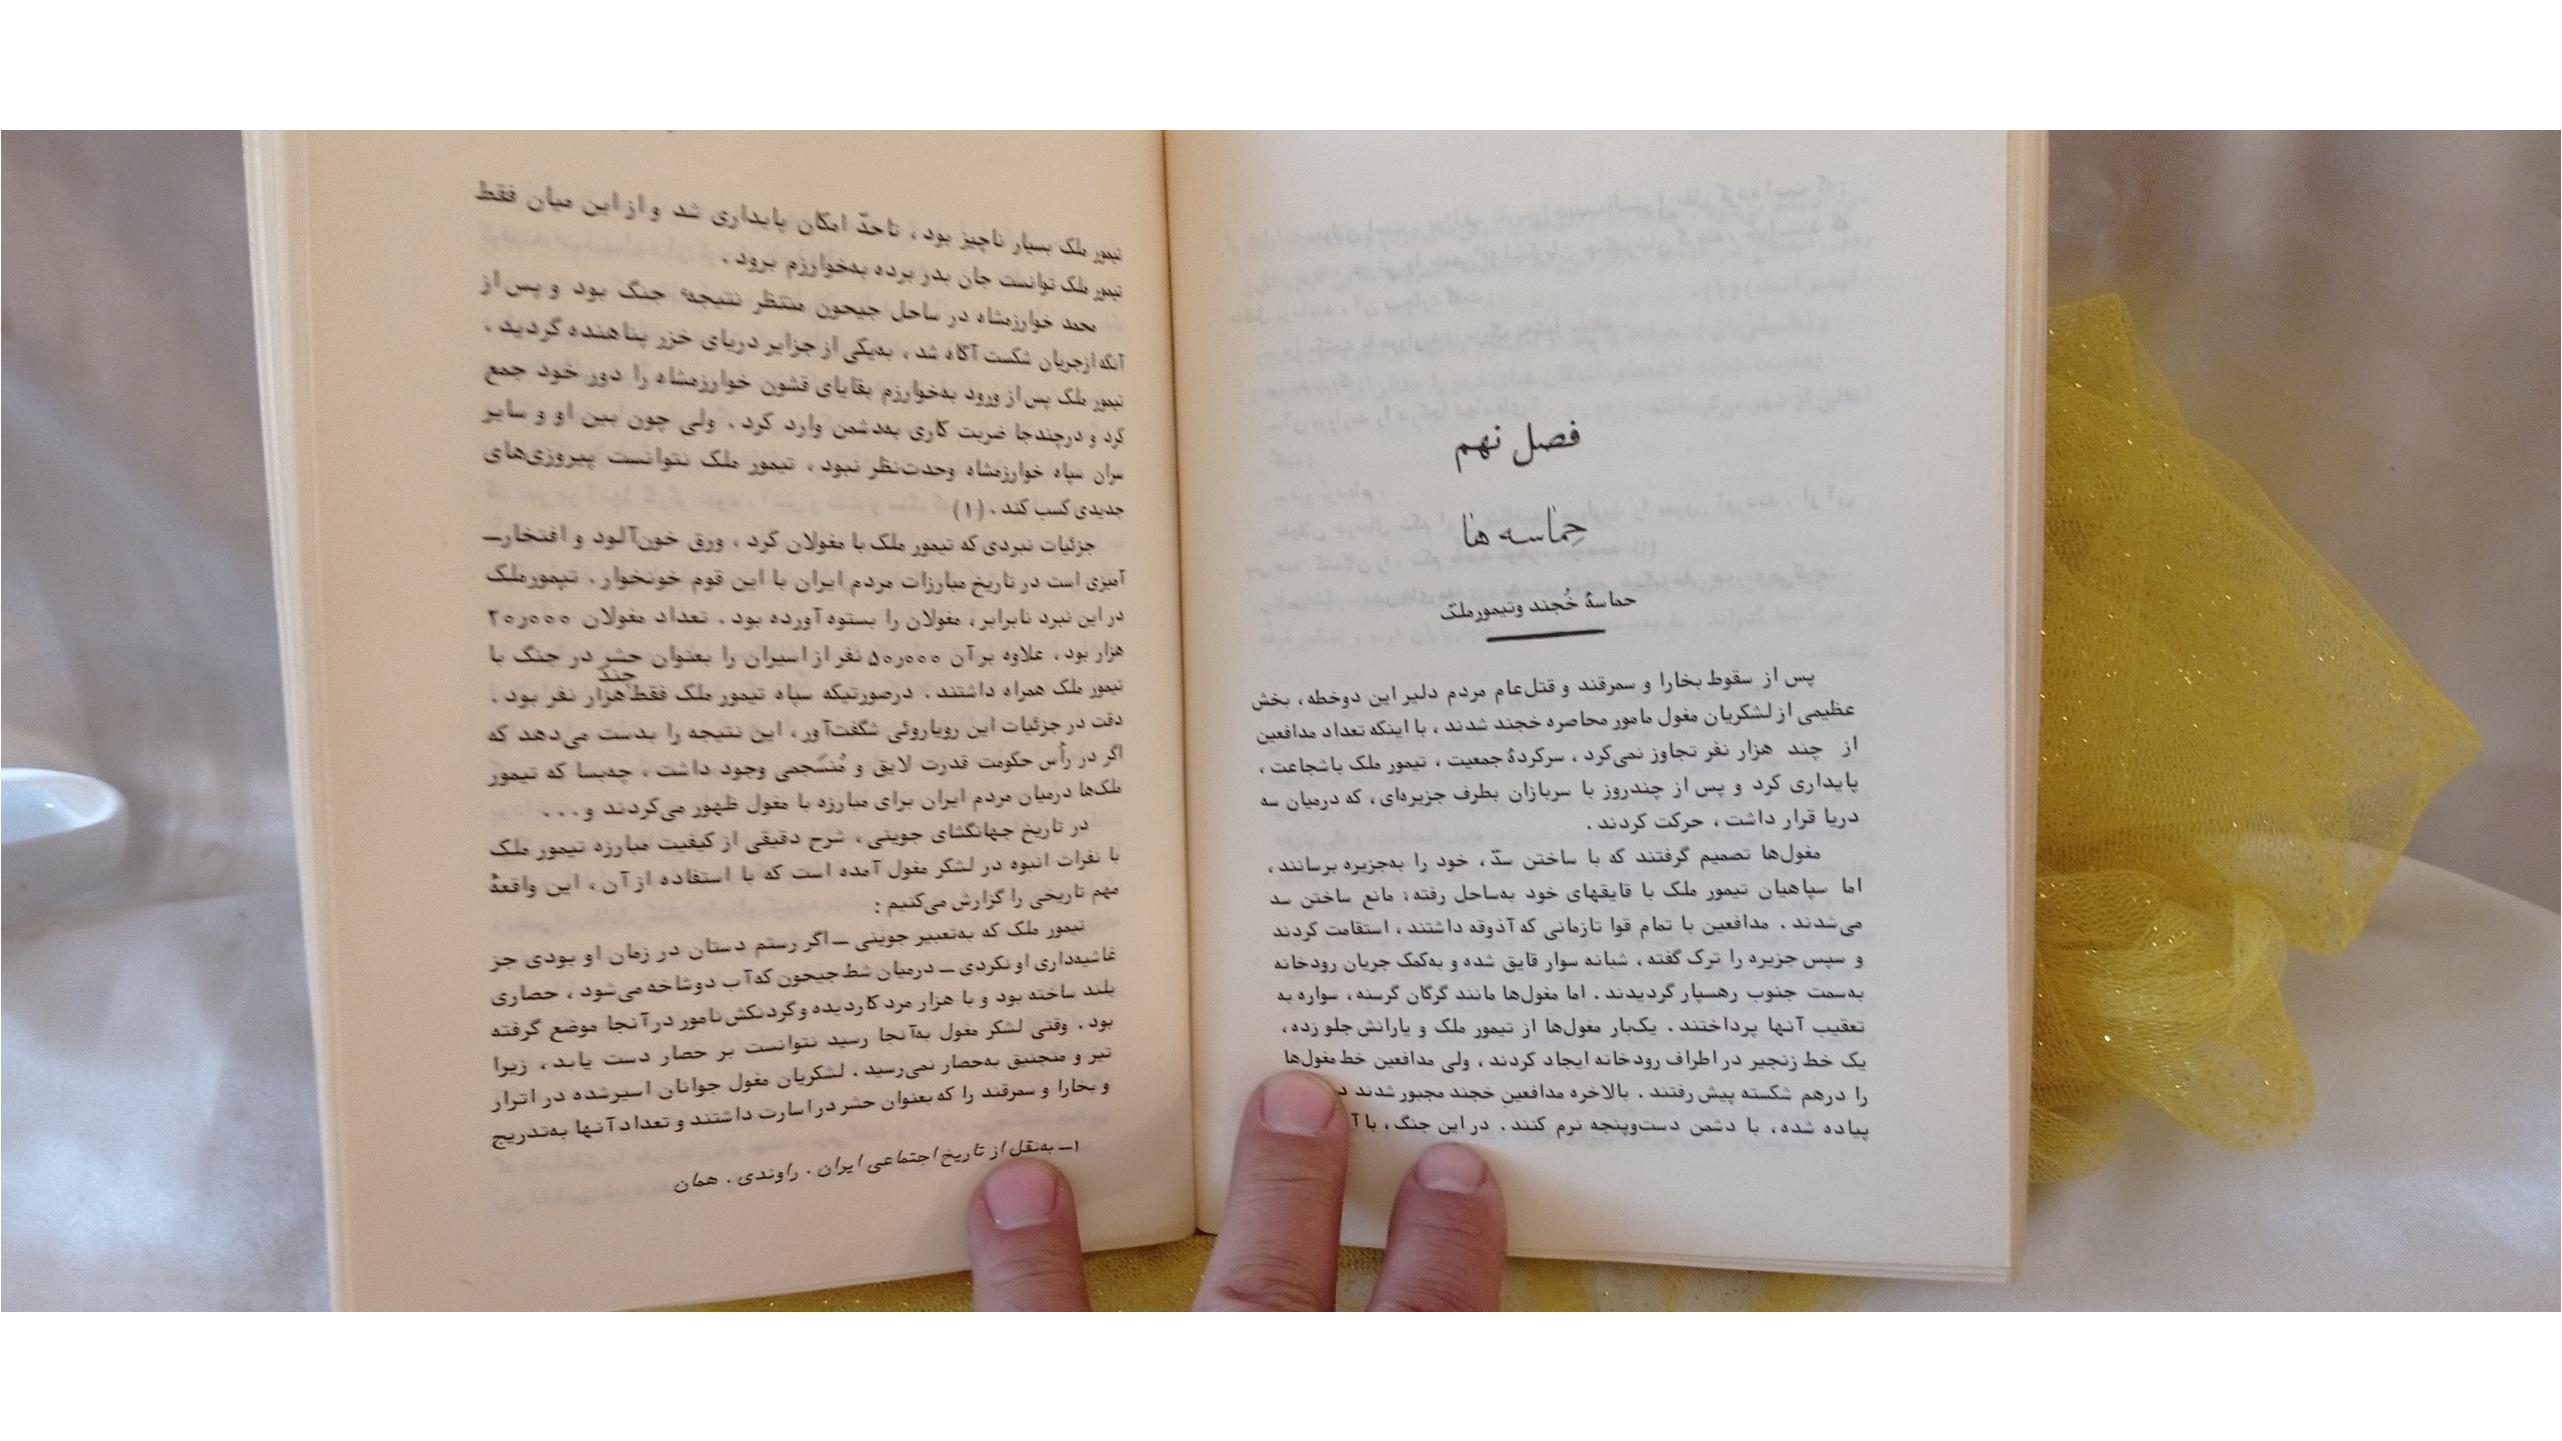 فصل نهم
حماسه ها
حماسهٔ خُجند و تیمور ملک
پس از سقوط بخارا و سمرقند و قتل‌عام مردم دلیر این دوخطه، بخش
عظیمی از لشکریان مغول مامور محاصره خجند شدند، با اینکه تعداد مدافعین
از چند هزار نفر تجاوز نمی‌کرد، سرکردهٔ جمعیت، تیمور ملک باشجاعت،
پایداری کرد و پس از چندروز با سربازان بطرف جزیره‌ای، که درمیان سه
دریا قرار داشت، حرکت کردند.
مغول‌ها تصمیم گرفتند که با ساختن سدّ، خود را به‌جزیره برسانند،
اما سپاهیان تیمور ملک با قایقهای خود به‌ساحل رفته، مانع ساختن سد
می‌شدند. مدافعین با تمام قوا تازمانی که آذوقه داشتند، استقامت کردند
و سپس جزیره را ترک گفته، شبانه سوار قایق شده و به‌کمک جریان رودخانه
به‌سمت جنوب رهسپار گردیدند. اما مغول‌ها مانند گرگان گرسنه، سواره به
تعقیب آنها پرداختند. یک‌بار مغول‌ها از تیمور ملک و یارانش جلو زده،
یک خط زنجیر در اطراف رودخانه ایجاد کردند، ولی مدافعین خط مغول‌ها
را درهم شکسته پیش رفتند. بالاخره مدافعین خجند مجبور شدند
پیاده شده، با دشمن دست‌وپنجه نرم کنند. در این جنگ، با
تیمور ملک بسیار ناچیز بود، تاحدّ امکان پایداری شد و از این میان فقط
تیمور ملک توانست جان بدر برده به‌خوارزم برود.
محمد خوارزمشاه در ساحل جیحون منتظر نتیجهٔ جنگ بود و پس از
آنکه ازجریان شکست آگاه شد، به‌یکی از جزایر دریای خزر پناهنده گردید.
تیمور ملک پس از ورود به‌خوارزم بقایای قشون خوارزمشاه را دور خود جمع
کرد و درچندجا ضربت کاری به‌دشمن وارد کرد. ولی چون بین او و سایر
سران سپاه خوارزمشاه وحدت‌نظر نبود، تیمور ملک نتوانست پیروزی‌های
جدیدی کسب کند. (۱)
جزئیات نبردی که تیمور ملک با مغولان کرد، ورق خون‌آلود و افتخارـ
آمیزی است در تاریخ مبارزات مردم ایران با این قوم خونخوار. تیمورملک
در این نبرد نابرابر، مغولان را بستوه آورده بود. تعداد مغولان ۲۰ر۰۰۰
هزار بود، علاوه بر آن ۵۰ر۰۰۰ نفر از اسیران را بعنوان حشر در جنگ با
تیمور ملک همراه داشتند. درصورتیکه سپاه تیمور ملک فقط چند هزار نفر بود.
دقت در جزئیات این رویاروئی شگفت‌آور، این نتیجه را بدست می‌دهد که
اگر در رأس حکومت قدرت لایق و مُنسجمی وجود داشت، چه‌بسا که تیمور
ملک‌ها درمیان مردم ایران برای مبارزه با مغول ظهور می‌کردند و...
در تاریخ جهانگشای جوینی، شرح دقیقی از کیفیت مبارزه تیمور ملک
با نفرات انبوه در لشکر مغول آمده است که با استفاده از آن، این واقعهٔ
مهم تاریخی را گزارش می‌کنیم:
تیمور ملک که به‌تعبیر جوینی ــ اگر رستم دستان در زمان او بودی جز
غاشیه‌داری او نکردی ــ درمیان شط جیحون که آب دوشاخه می‌شود، حصاری
بلند ساخته بود و با هزار مرد کاردیده وگردنکش نامور در آنجا موضع گرفته
بود. وقتی لشکر مغول به‌آنجا رسید نتوانست بر حصار دست یابد، زیرا
تیر و منجنیق به‌حصار نمی‌رسید. لشکریان مغول جوانان اسیرشده در اترار
و بخارا و سمرقند را که بعنوان حشر در اسارت داشتند و تعداد آنها به‌تدریج
۱ــ به‌نقل از تاریخ اجتماعی ایران. راوندی. همان